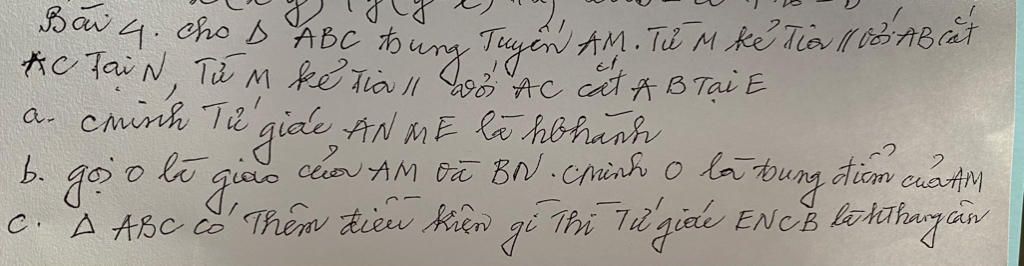 Bài 4. cho Δ ABC trung Tuyến AM. Từ M kẻ Tia // với AB cắt
AC Tại N, Từ M kẻ Tia // với AC cắt AB Tại E
a. cminh Tứ giác ANME là hbhành
b. gọi O là giao của AM và BN. cminh O là trung điểm của AM
c. Δ ABC có Thêm điều kiện gì Thì Tứ giác ENCB là hThang cân